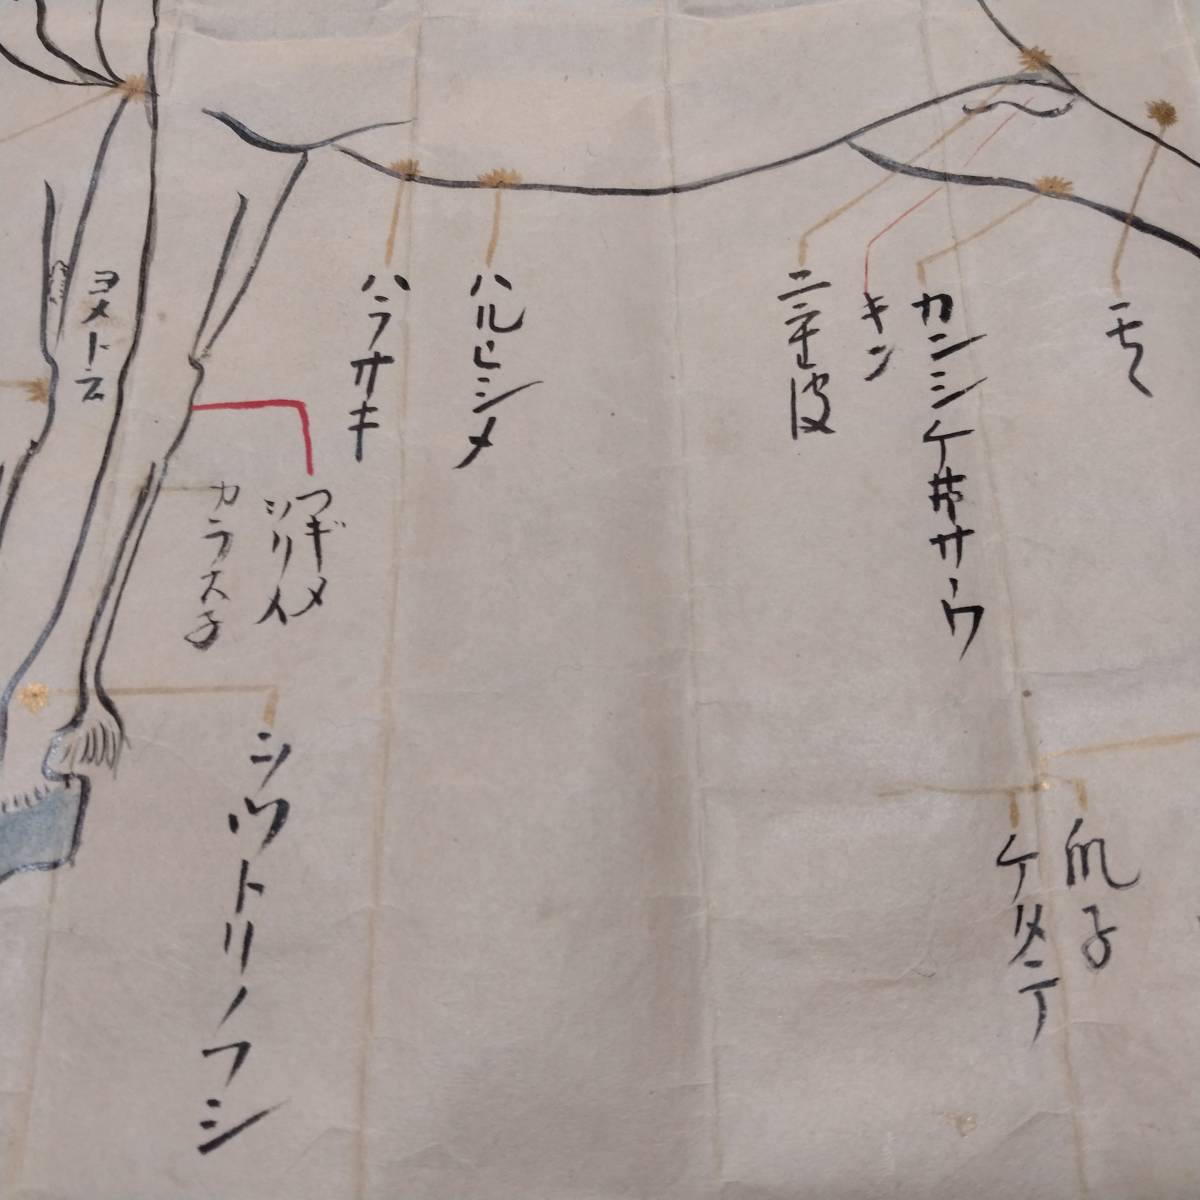 モヽ
カンシケ井サウ
キン
ニモ皮
ハルヒシメ
ハラサキ
ヨメトヲ
ツギメ
シリイ
カラス子
爪子
ケタテ
シツトリノフシ